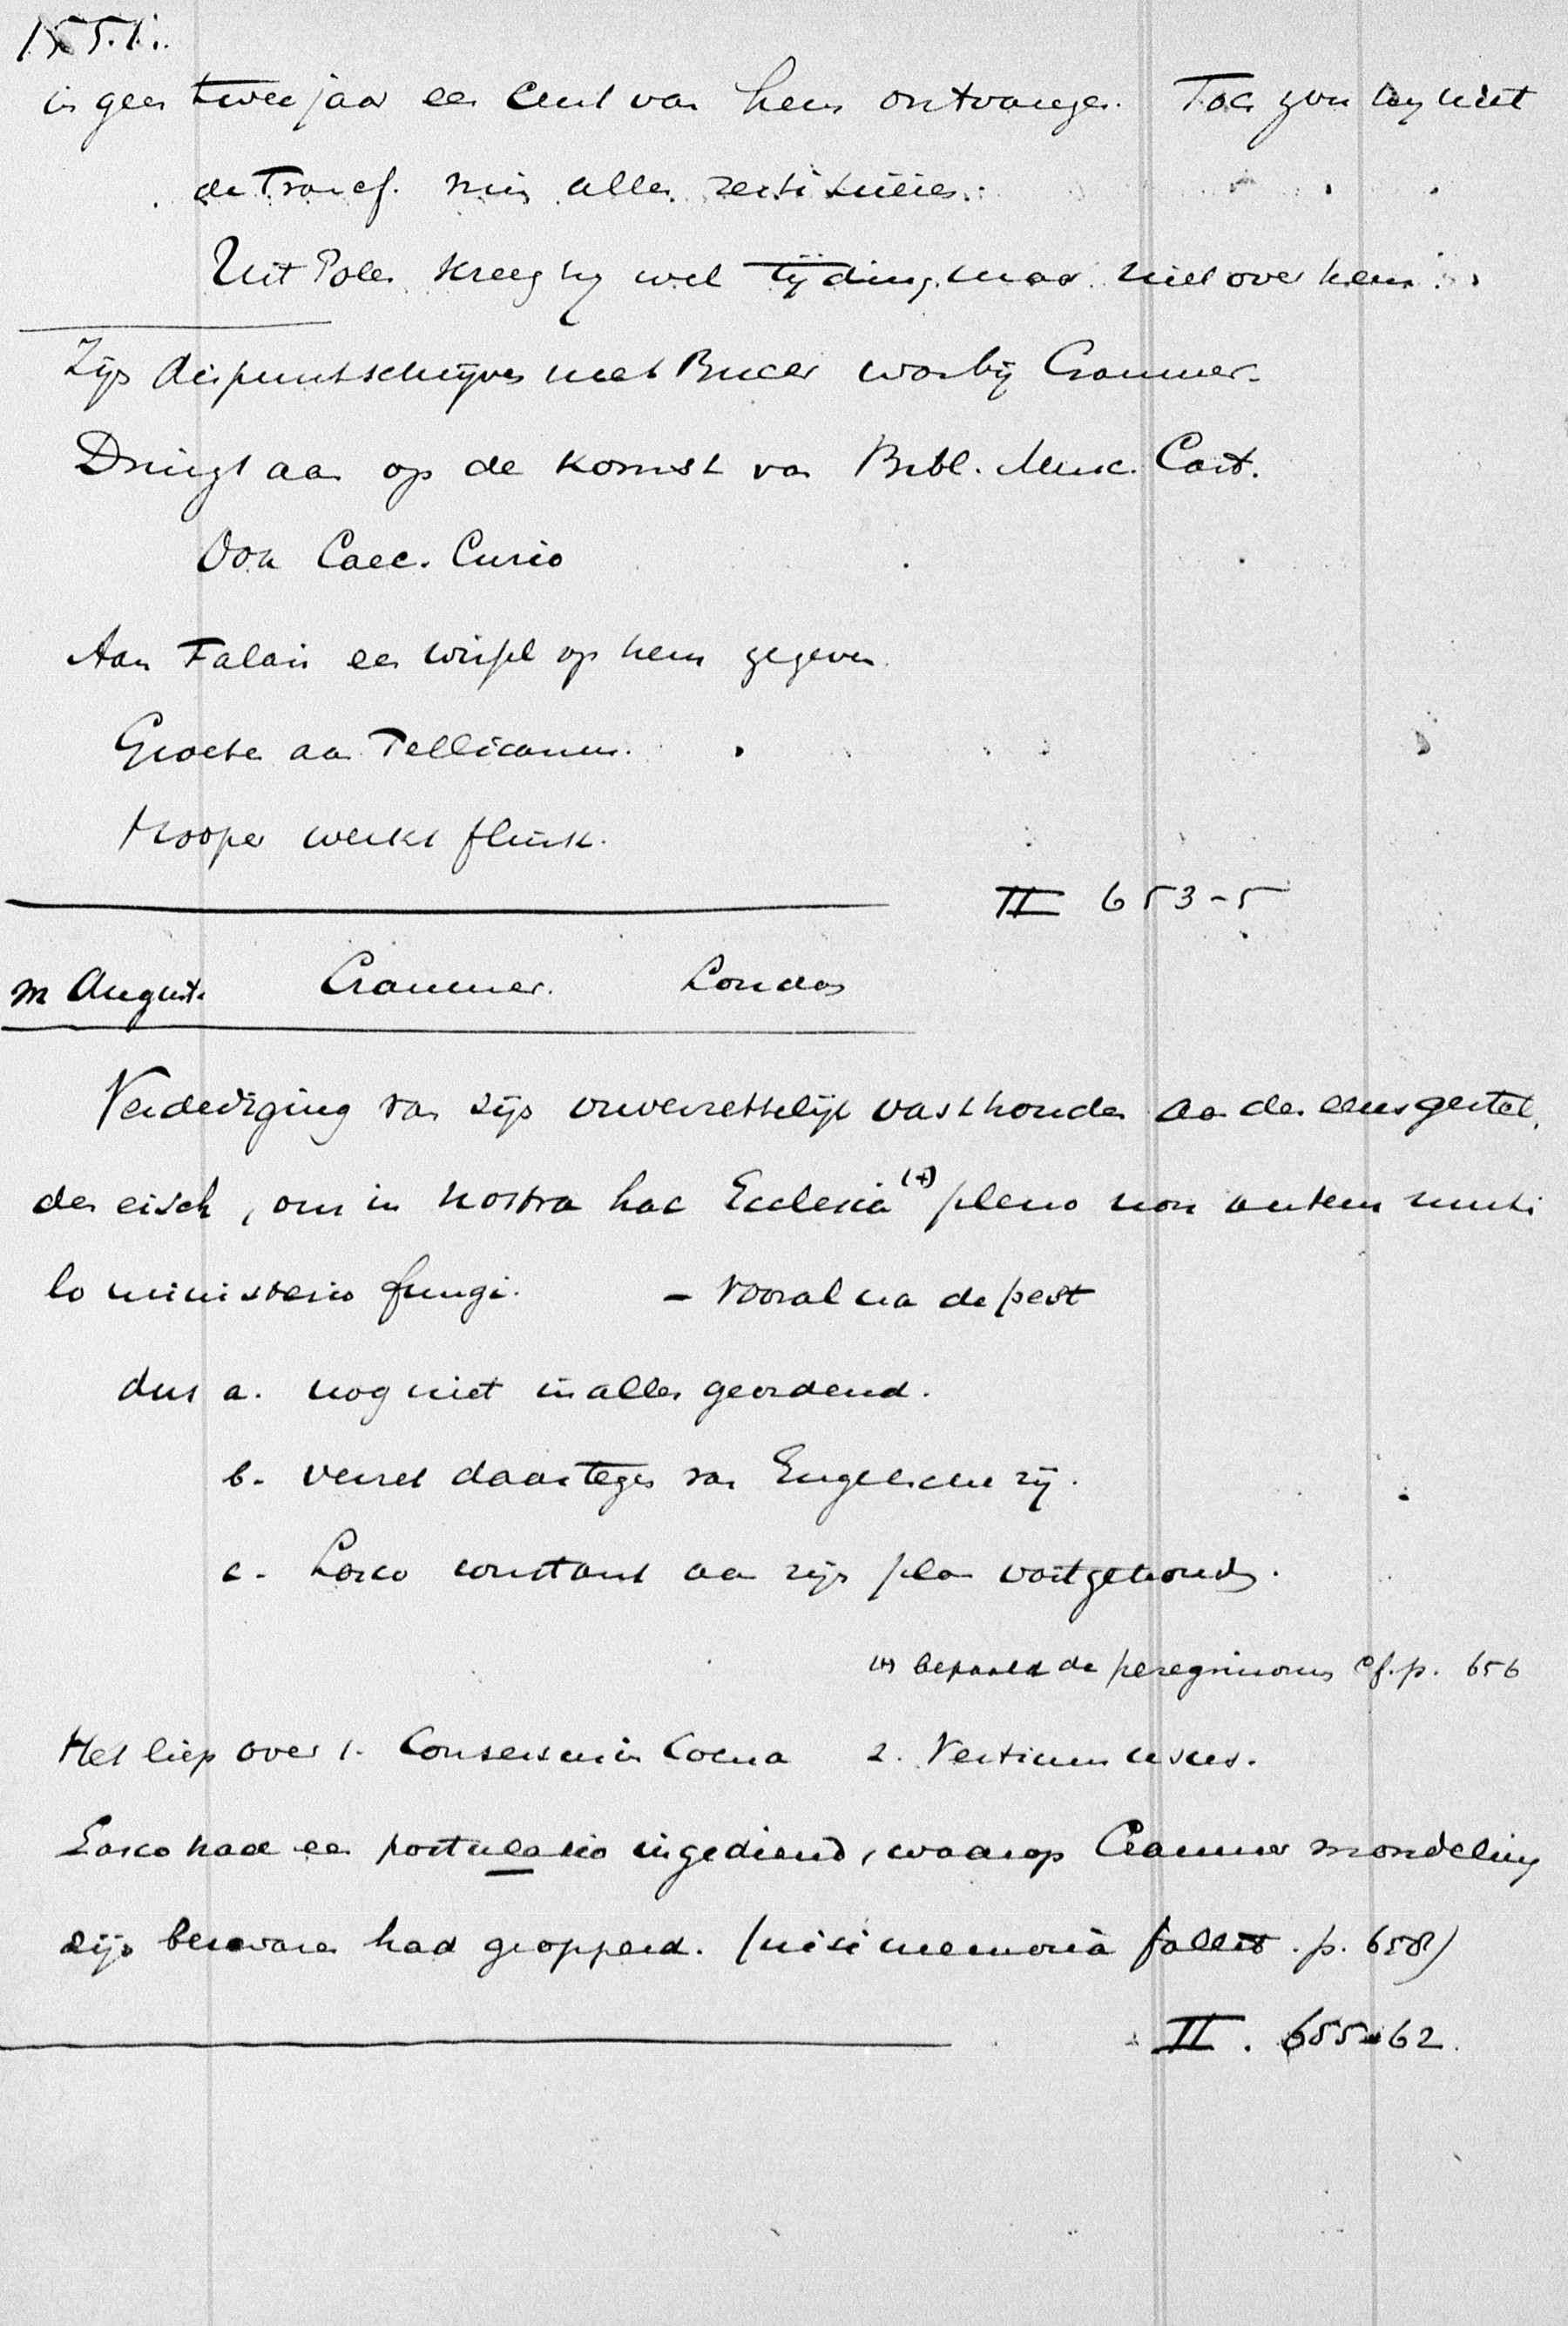 1551.
in geen twee jaar een cent van hem ontvangen. Toch zou hij niet
de Francf. min alles restitueeren.
Uit Polen kreeg hij wel tijding, maar niet over hem.
Zijn dispuutschrijven met Bucer waarbij Cranmer.
Dringt aan op de komst van Bibl. Musc. Cast.
Ook Cael. Curio
Aan Falais een wissel op hem gegeven
Groeten aan Pellicanus.
Hooper werkt flink.
II 653-5
m August. Cranmer. Londen
Verdediging van zijn onverzettelijk vasthouden aan den eensgestel.
den eisch, om in nostra hac Ecclesia (+) pleno non autem muti
lo ministerio fungi. - Vooral na de pest
dus a. nog niet in alles geordend.
b. verzet daartegen van Engelsche zij.
c. Lasco constant aan zijn plan vastgehouden.
(+) bepaald de peregrinorum cf. p. 656
Het liep over 1. Consessus in Coena 2. Vestium usus.
Lasco had een postulatio ingediend, waarop Cranmer mondeling
zijn bezwaren had geopperd. (nisi memoria fallit. p. 658)
II. 655-62.